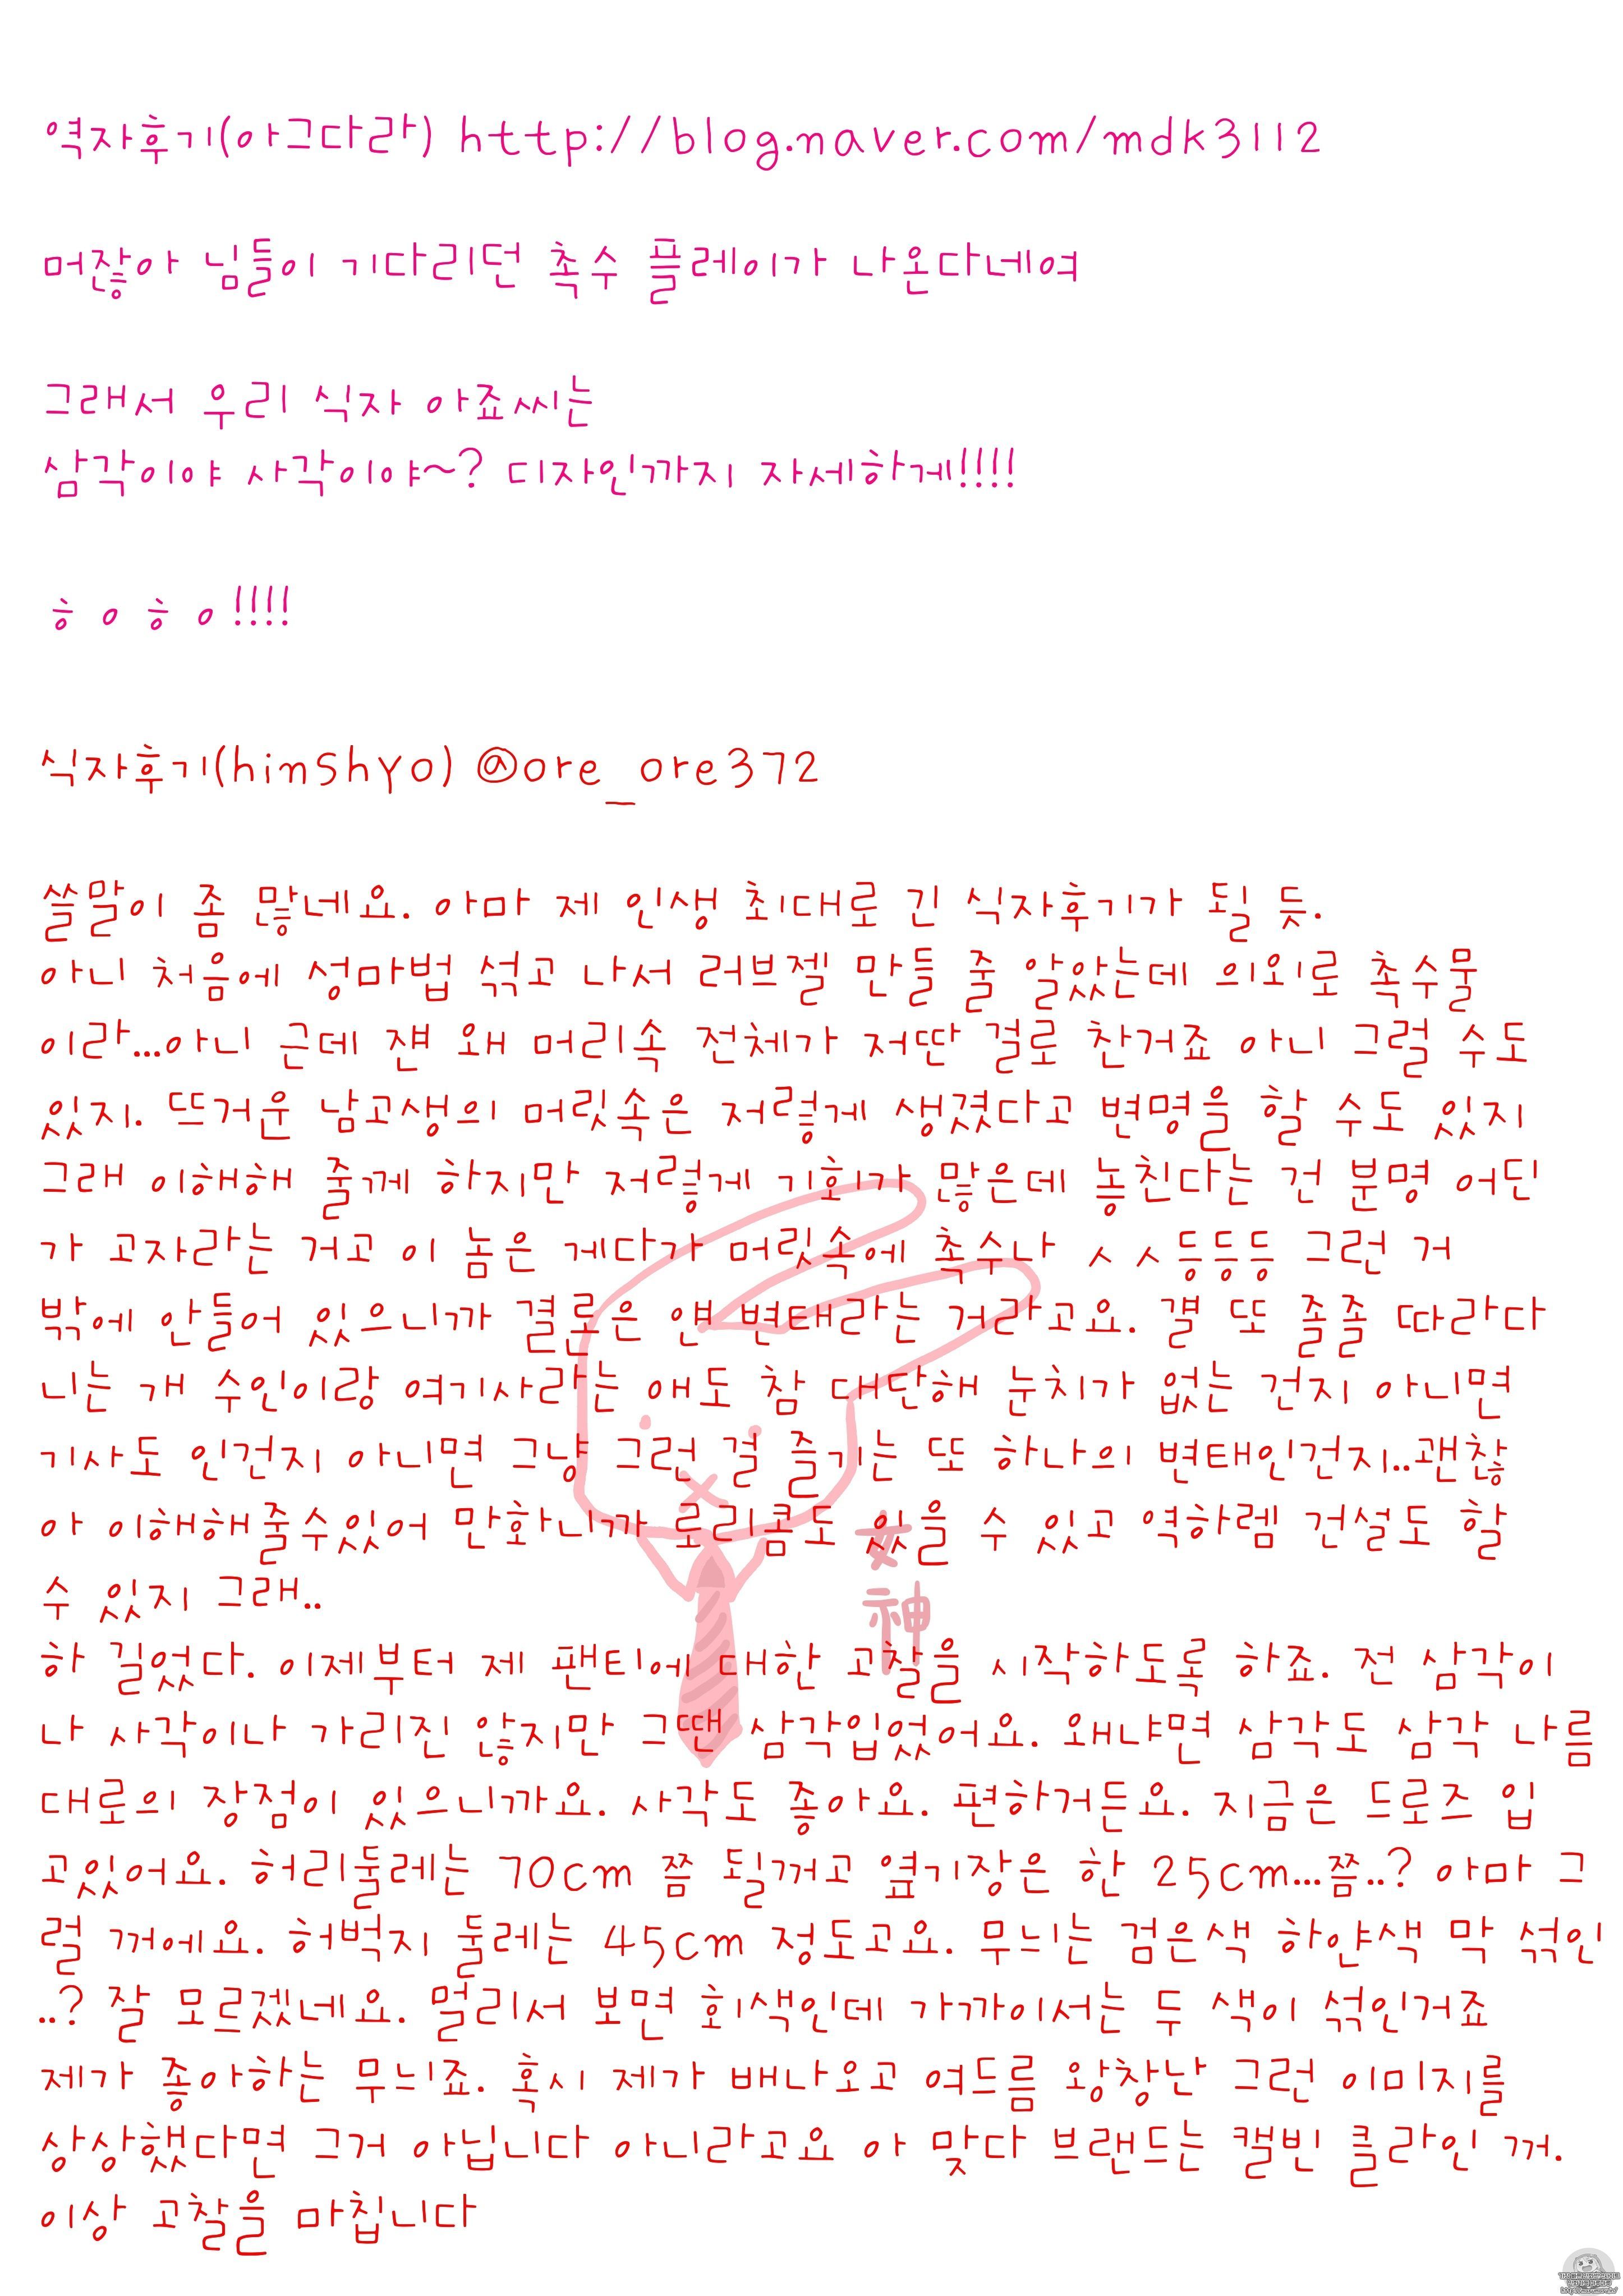 역자후기(아그다라) http://blog.naver.com/mdk3112
머잖아 님들이 기다리던 촉수 플레이가 나온다네여
그래서 우리 식자 아죠씨는
삼각이야 사각이야~? 디자인까지 자세하게!!!!
ㅎㅇㅎㅇ!!!!
식자후기(hinshyo) @ore_ore372
쓸말이 좀 많네요. 아마 제 인생 최대로 긴 식자후기가 될 듯.
아니 처음에 성마법 섞고 나서 러브젤 만들 줄 알았는데 의외로 촉수물
이라...아니 근데 쟨 왜 머리속 전체가 저딴 걸로 찬거죠 아니 그럴 수도
있지. 뜨거운 남고생의 머릿속은 저렇게 생겼다고 변명을 할 수도 있지
그래 이해해 줄께 하지만 저렇게 기회가 많은데 놓친다는 건 분명 어딘
가 고자라는 거고 이 놈은 게다가 머릿속에 촉수나 ㅅㅅ등등등 그런 거
밖에 안들어 있으니까 결론은 얜 변태라는 거라고요. 걜 또 졸졸 따라다
니는 개 수인이랑 여기사라는 애도 참 대단해 눈치가 없는 건지 아니면
기사도 인건지 아니면 그냥 그런 걸 즐기는 또 하나의 변태인건지..괜찮
아 이해해줄수있어 만화니까 로리콤도 있을 수 있고 역하렘 건설도 할
수 있지 그래..
하 길었다. 이제부터 제 팬티에 대한 고찰을 시작하도록 하죠. 전 삼각이
나 사각이나 가리진 않지만 그땐 삼각입었어요. 왜냐면 삼각도 삼각 나름
대로의 장점이 있으니까요. 사각도 좋아요. 편하거든요. 지금은 드로즈 입
고있어요. 허리둘레는 70cm 쯤 될꺼고 옆기장은 한 25cm...쯤..? 아마 그
럴 꺼에요. 허벅지 둘레는 45cm 정도고요. 무늬는 검은색 하얀색 막 섞인
..? 잘 모르겠네요. 멀리서 보면 회색인데 가까이서는 두 색이 섞인거죠
제가 좋아하는 무늬죠. 혹시 제가 배나오고 여드름 왕창난 그런 이미지를
상상했다면 그거 아닙니다 아니라고요 아 맞다 브랜드는 캘빈 클라인 꺼.
이상 고찰을 마칩니다
女神